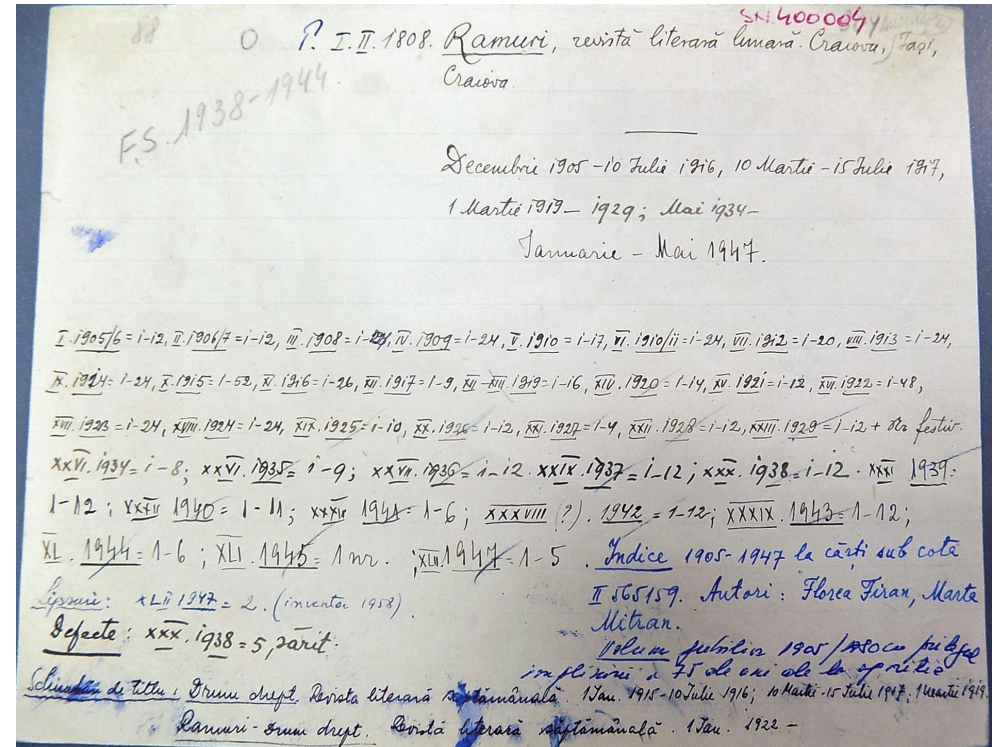 SN.400004
88
O P. I.II.1808. Ramuri, revistă literară lunară. Craiova, Iași,
Craiova.
F.S. 1938-1944.
Decembrie 1905 - 10 Iulie 1916, 10 Martie - 15 Iulie 1917,
1 Martie 1919 - 1929; Mai 1934 -
Ianuarie - Mai 1947.
I.1905/6 = 1-12, II.1906/7 = 1-12, III.1908 = 1-24, IV.1909 = 1-24, V.1910 = 1-17, VI.1910/11 = 1-24, VII.1912 = 1-20, VIII.1913 = 1-24,
IX.1914 = 1-24, X.1915 = 1-52, XI.1916 = 1-26, XII.1917 = 1-9, XII-XIII.1919 = 1-16, XIV.1920 = 1-14, XV.1921 = 1-12, XVI.1922 = 1-48,
XVII.1923 = 1-24, XVIII.1924 = 1-24, XIX.1925 = 1-10, XX.1926 = 1-12, XXI.1927 = 1-4, XXII.1928 = 1-12, XXIII.1929 = 1-12 + Nr festiv.
XXVI.1934 = 1-8; XXVI.1935 = 1-9; XXVII.1936 = 1-12. XXIX.1937 = 1-12; XXX.1938 = 1-12. XXXI 1939 =
1-12; XXXII 1940 = 1-11; 1941 = 1-6; XXXVIII (?). 1942 = 1-12; XXXIX.1943 = 1-12;
XL.1944 = 1-6; XLI.1945 = 1 nr.; XLII 1947 = 1-5. Indice 1905-1947 la cărți sub cota
II 565159. Autori: Florea Firan, Marta
Mitran.
Lipsuri: XLII 1947 = 2. (inventar 1958).
Defecte: XXX.1938 = 5, părit.
Volum jubiliar 1905/1980 cu prilejul
împlinirii a 75 de ani de la apariție
Schimbări de titlu: Drum drept. Revista literară săptămânală 1 Ian. 1915 - 10 Iulie 1916; 10 Martie - 15 Iulie 1917; 1 Martie 1919.
Ramuri - Drum drept. Revistă literară săptămânală. 1 Ian. 1922 -